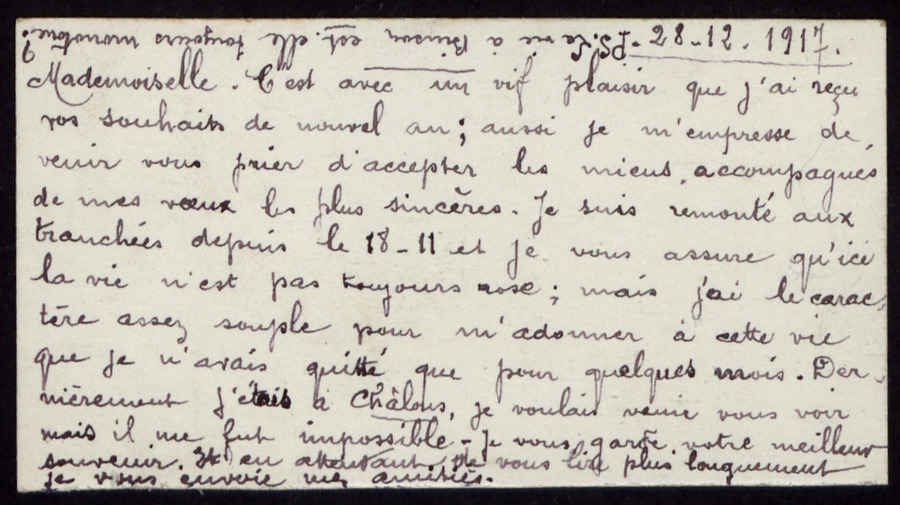 28-12-1917.
Mademoiselle. C'est avec un vif plaisir que j'ai reçu
vos souhaits de nouvel an; aussi je m'empresse de
venir vous prier d'accepter les miens, accompagnés
de mes vœux les plus sincères. Je suis remonté aux
tranchées depuis le 18-11 et je vous assure qu'ici
la vie n'est pas toujours rose; mais j'ai le carac-
tère assez souple pour m'adonner à cette vie
que je n'avais quitté que pour quelques mois. Der-
nièrement j'étais à Châlons, je voulais venir vous voir
mais il me fut impossible - Je vous garde votre meilleur
souvenir. Et en attendant de vous lire plus longuement
je vous envoie mes amitiés.
P.S. La vie à Binson est-elle toujours monotone?